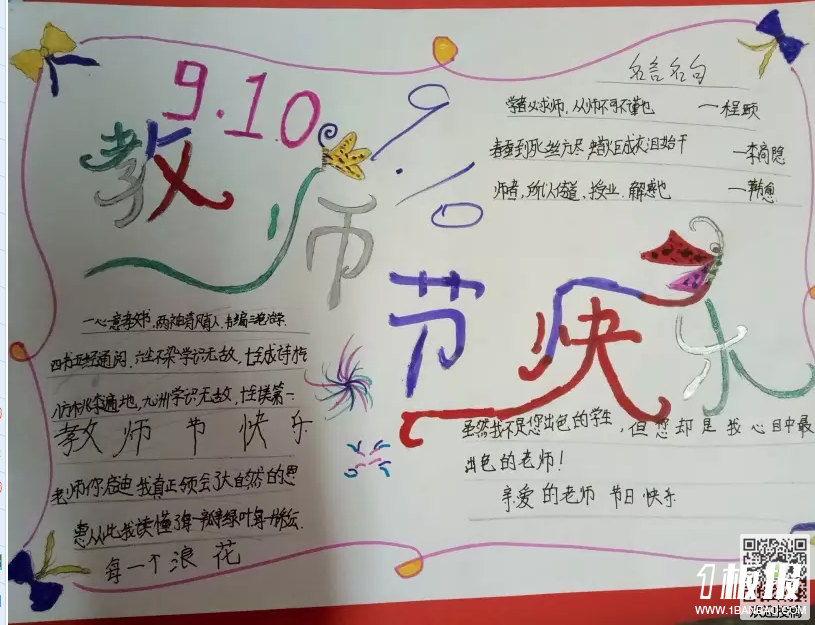 9.10
9.10
教师
节快乐
名言名句
学者必求师，从师不可不谨也 一程颐
春蚕到死丝方尽 蜡炬成灰泪始干 一李商隐
师者，所以传道，授业，解惑也 一韩愈
一心一意教书，两袖清风育人，
四书五经通阅，六尘不染学识无故，七步成诗
八方桃李遍地，九洲学识无故，十
教师节快乐
老师你启迪我真正领会了大自然的恩
惠从此我读懂了每一瓣绿叶每一
每一个浪花
虽然我不是您出色的学生，但您却是我心目中最
出色的老师！
亲爱的老师 节日快乐
1板报
WWW.1BANBAO.COM
欢迎投稿